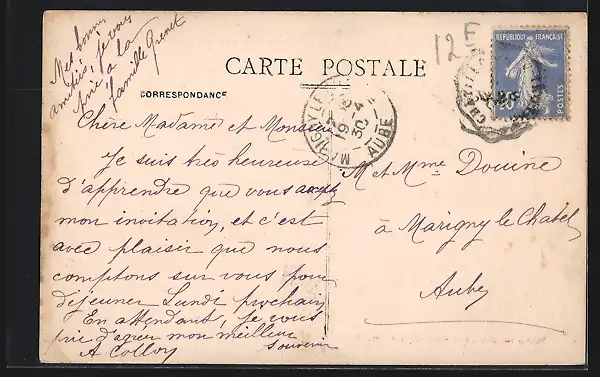 Mes bonnes
amitiés, je vous
prie à la
famille Grenet
12 F
CARTE POSTALE
CORRESPONDANCE
RÉPUBLIQUE FRANÇAISE
POSTES
MARIGNY LE
19
30
AUBE
Chère Madame et Monsieur
Je suis très heureuse
d'apprendre que vous acceptez
mon invitation, et c'est
avec plaisir que nous
comptons sur vous pour
déjeuner Lundi prochain
En attendant, je vous
prie d'agréer mon meilleur
souvenir
A Colloy
M et Mme Douine
à Marigny le Chatel
Aube